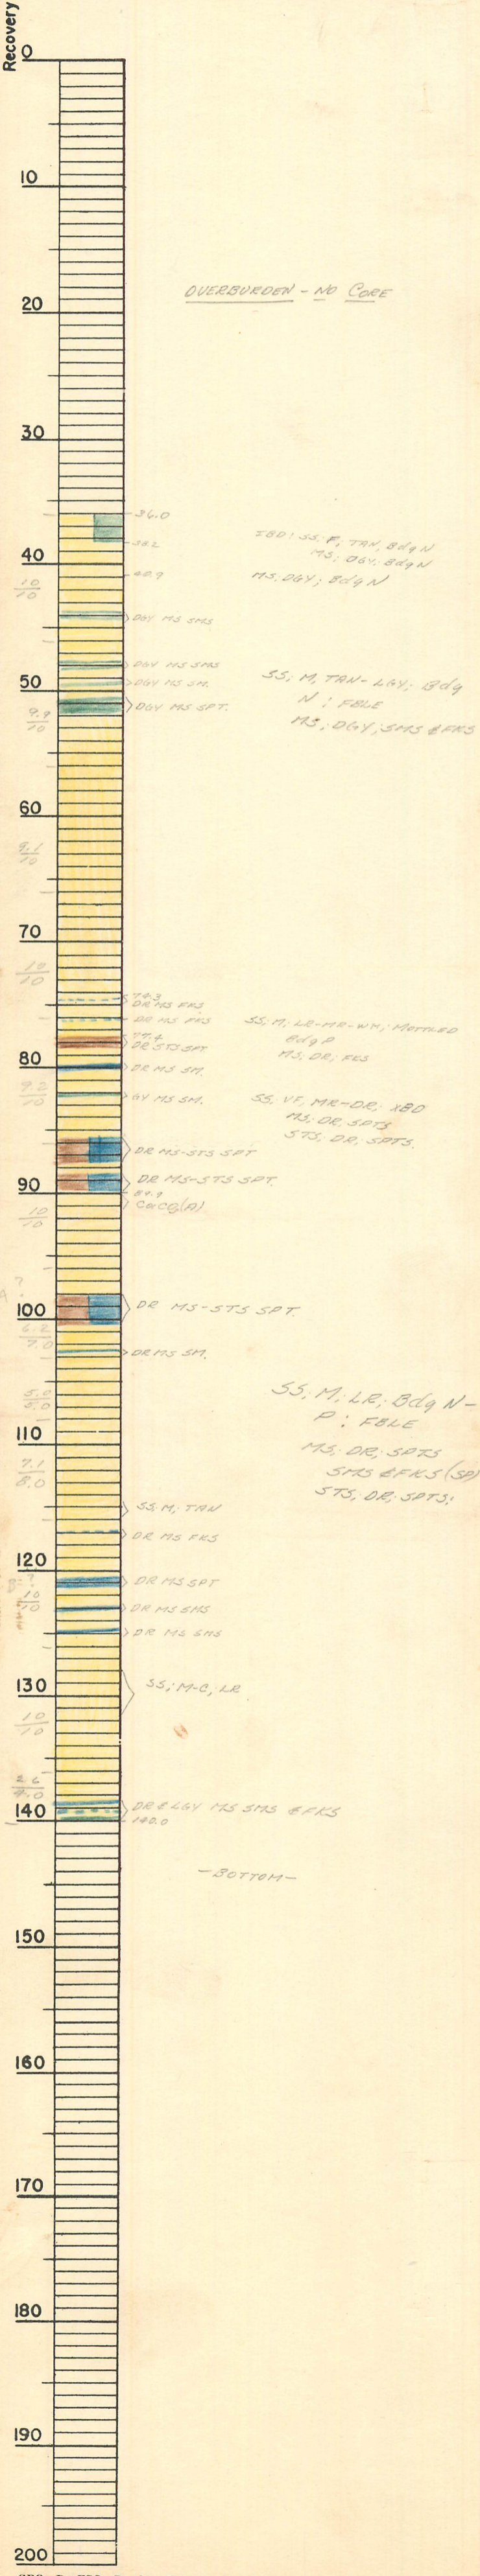 Recovery
0
10
20
OVERBURDEN - NO CORE
30
36.0
38.2
IBD: SS, F, TAN, Bdg N
MS; DGY; Bdg N
40
40.9
MS, DGY; Bdg N
10/10
DGY MS SMS
DGY MS SMS
DGY MS SM.
SS; M, TAN-LGY; Bdg
N; FBLE
MS; DGY; SMS & FKS
50
DGY MS SPT.
9.9/10
60
9.1/10
70
10/10
74.3
DR MS FKS
DR MS FKS
SS, M; LR-MR-WH; MOTTLED
Bdg P
MS; DR; FKS
77.4
DR STS SPT
80
DR MS SM.
9.2/10
GY MS SM.
SS, VF, MR-DR, XBD
MS; DR, SPTS
STS; DR, SPTS.
DR MS-STS SPT
DR MS-STS SPT.
90
89.9
CaCO3(A)
10/10
?
A
100
DR MS-STS SPT.
6.2/7.0
DR MS SM.
5.0/5.0
SS; M; LR; Bdg N-
P; FBLE
MS; DR; SPTS
SMS & FKS (SP)
STS; DR; SPTS.
110
7.1/8.0
SS, M, TAN
DR MS FKS
120
B-?
DR MS SPT
10/10
DR MS SMS
DR MS SMS
130
SS; M-C; LR
10/10
2.6/4.0
DR & LGY MS SMS & FKS
140
140.0
-BOTTOM-
150
160
170
180
190
200